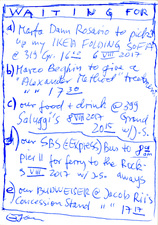 WAITING FOR
a) Marta Dann Rosario to pick
up my IKEA FOLDING SOFA
@ 319 Gr. 16 8 VIII 2017
b) Marco Borghin to give a
"Alexander Method" treat
" " 17 30
c) our food + drink @ 399
Saluggi's 8 VIII Grand
2015 w/ J-S.
d) our SBS (EXPRESS) Bus to
pier 11 for ferry to the Rock-
8 VIII 2017 w/ J-S. aways
e) our BUDWEISER @ Jacob Riis
Concession Stand " 17 17